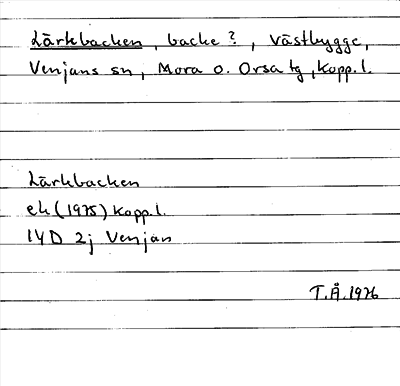 Lärkbacken, backe?, Västbygge,
Venjans sn, Mora o. Orsa tg, Kopp.l.
Lärkbacken
ek (1975) Kopp.l.
14D 2j Venjan
T.Å. 1976